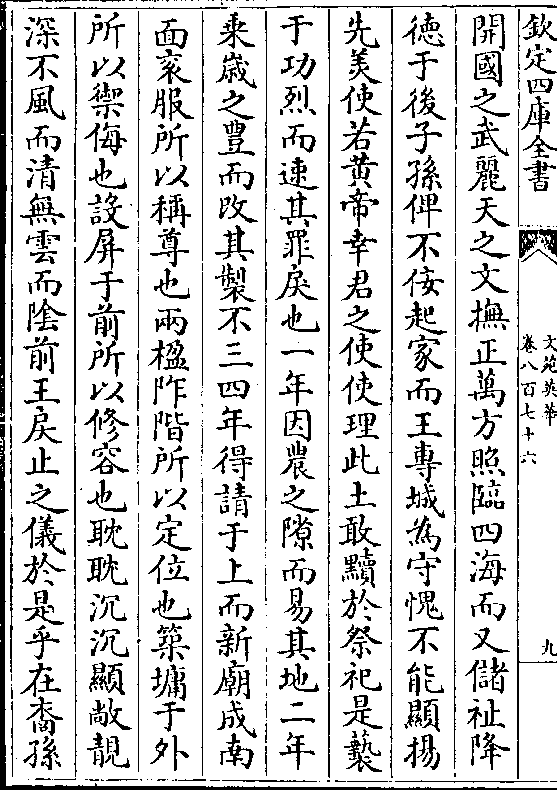 欽定四庫全書
文苑英華
卷八百七十六
九
開國之武麗天之文撫正萬方照臨四海而又儲祉降
德于後子孫俾不佞起家而王專城為守愧不能顯揚
先美使若黄帝幸君之使使理此土敢黷於祭祀是藝
于功烈而速其罪戾也一年因農之隙而易其地二年
乗嵗之豊而改其製不三四年得請于上而新廟成南
面衮服所以稱尊也兩楹阼階所以定位也築墉于外
所以禦侮也設屏于前所以修容也耽耽沉沉顯敞靚
深不風而清無雲而陰前王戾止之儀於是乎在裔孫